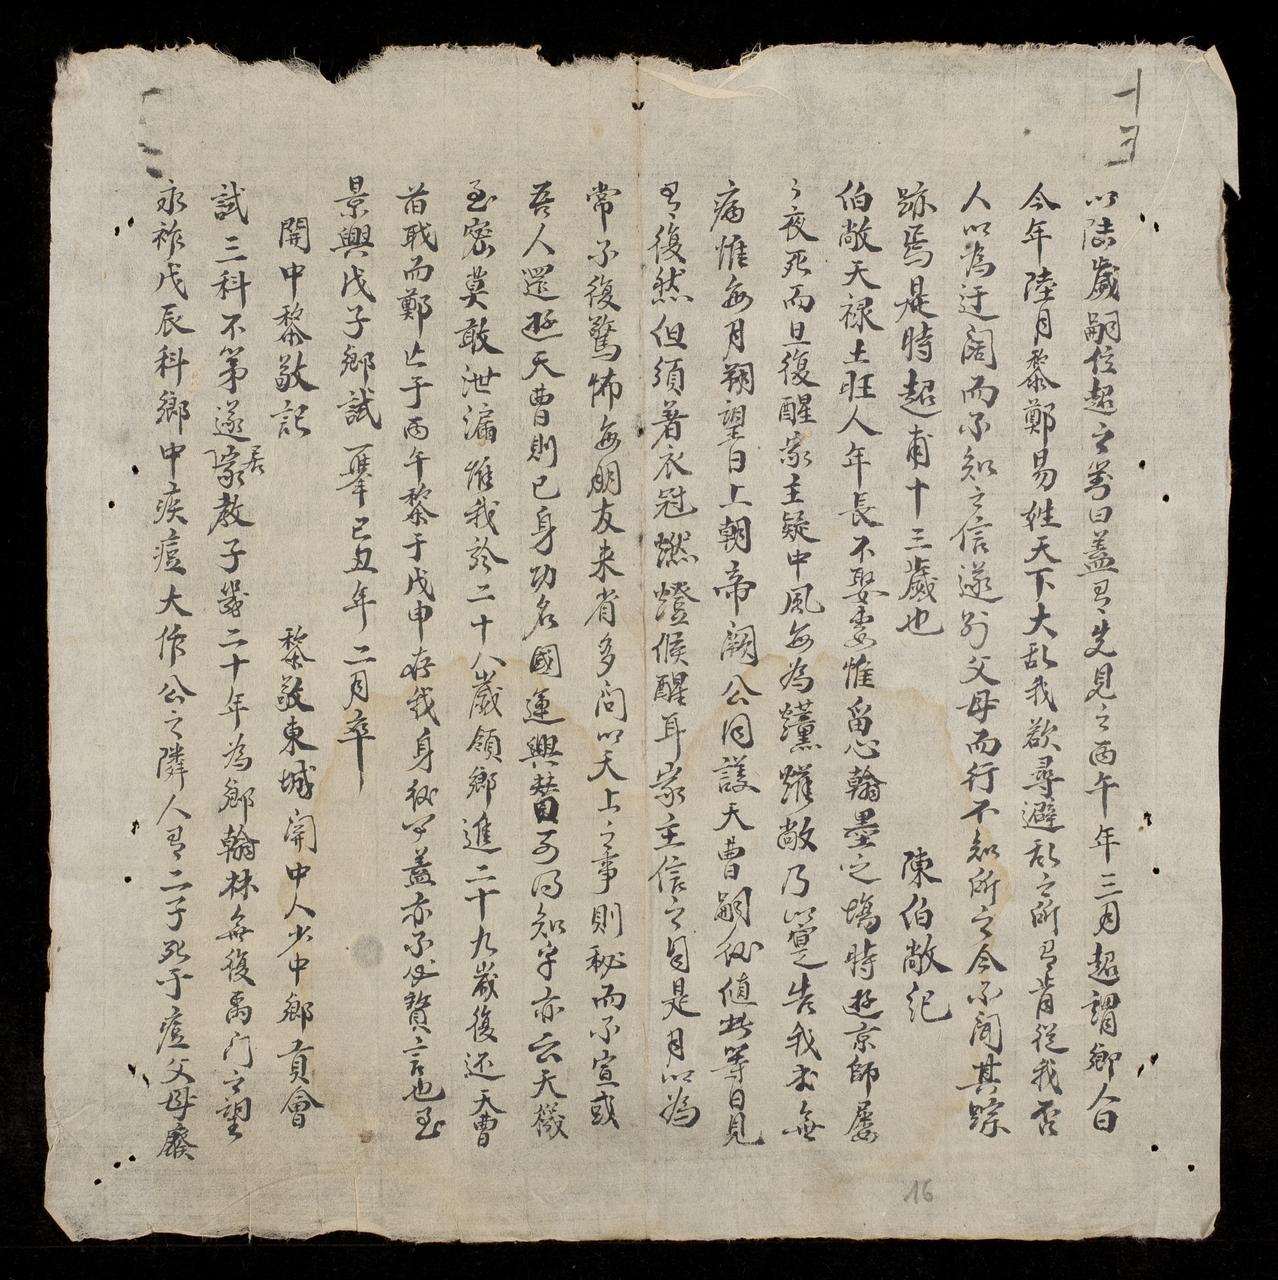 以陆歲嗣位超之答曰盖有先見之丙午年三月超謂鄉人曰
今年陸月黎鄭易姓天下大乱我欲尋避乱之所有肯從我否
人以為迂阔而不知之信遂別父母而行不知所之今不聞其踪
跡焉是時超甫十三歲也
陳伯敞紀
伯敞天禄土旺人年長不娶妻惟畱心翰墨之塲時遊京師屡
々夜死而旦復醒家主疑中風每為爊爟敞乃覺告我本無
病惟每月朔望日上朝帝闕公同議天曹嗣後值此等日見
有復然但須著衣冠燃燈候醒耳家主信之自是月以為
常不復驚怖每朋友来省多问以天上之事則秘而不宣或
吾人還遊天曹則已身功名國運興替可得知乎亦云天機
至密莫敢泄漏惟我於二十八歲領鄉進二十九歲復还天曹
首戢而鄭亡于丙午黎于戊申存我身後事盖亦不必贅言也至
景興戊子鄉試舉己丑年二月卒
開中黎敬記
黎敬東城開中人少中鄉貢會
試三科不第遂居家教子幾二十年為鄉翰林無復禹门之望
永祚戊辰科鄉中疾痘大作公之隣人有二子死于痘父母廢
16